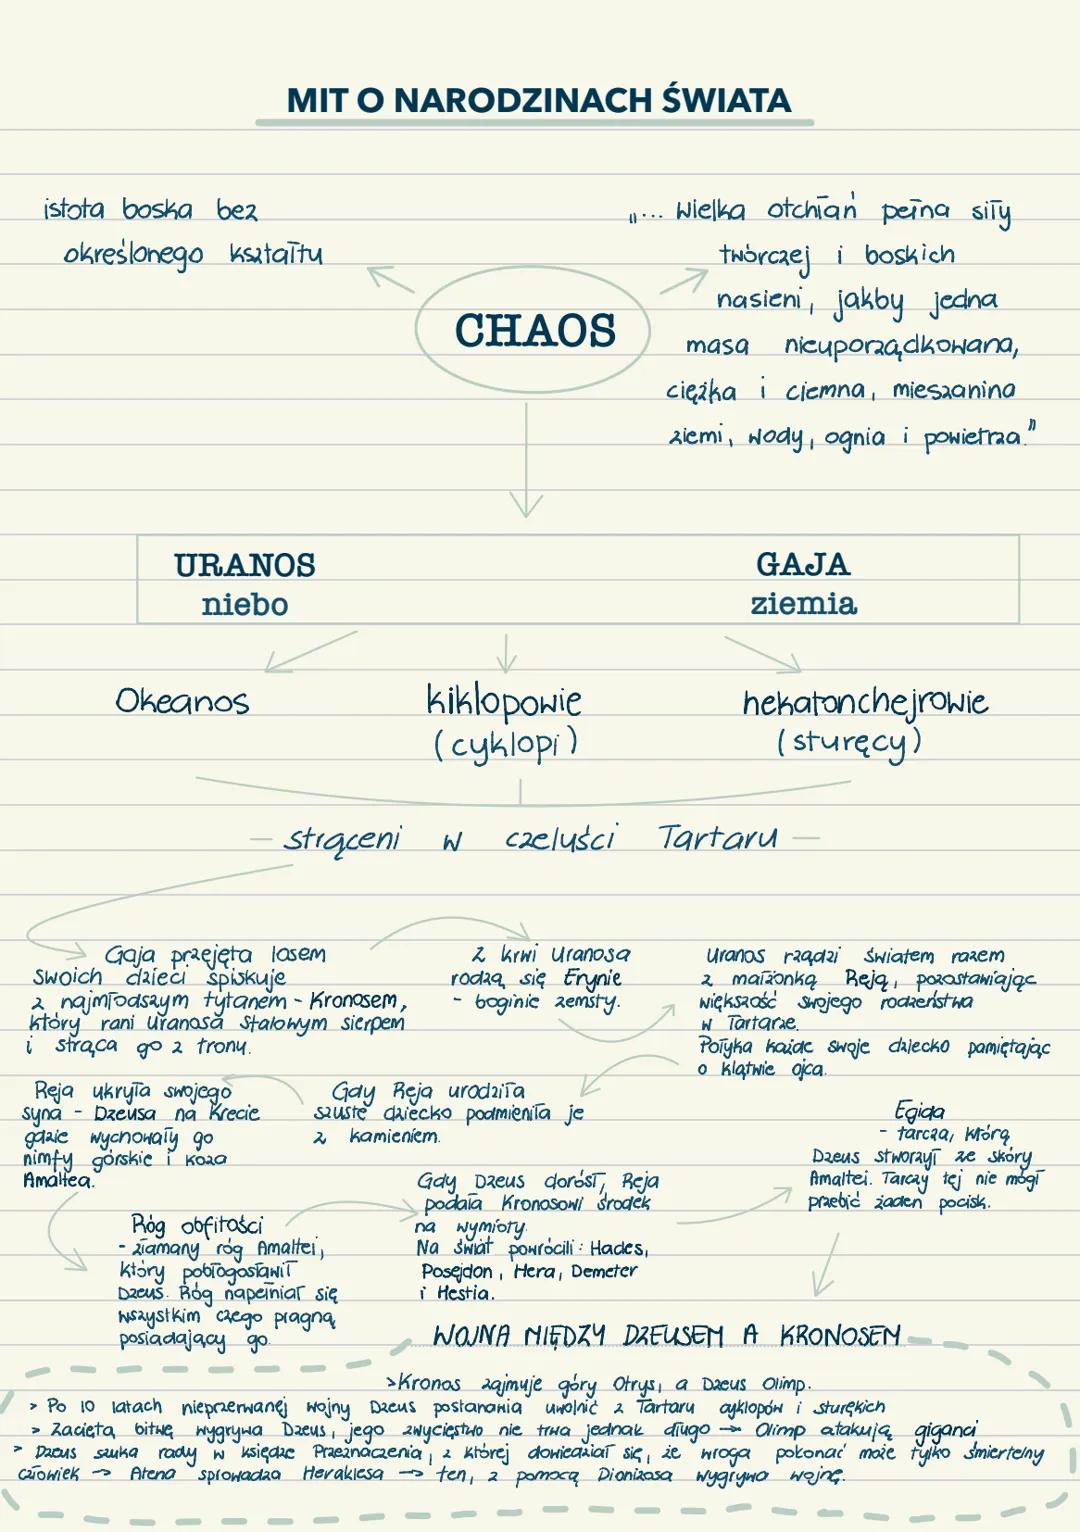 MIT O NARODZINACH ŚWIATA
istota boska bez
określonego kształtu
„... Wielka otchłań pełna siły
twórczej i boskich
nasieni, jakby jedna
masa nieuporządkowana,
ciężka i ciemna, mieszanina
ziemi, wody, ognia i powietrza."
CHAOS
URANOS
niebo
GAJA
ziemia
Okeanos
kiklopowie
(cyklopi)
hekatonchejrowie
(sturęcy)
— strąceni w czeluści Tartaru —
Gaja przejęta losem
swoich dzieci spiskuje
z najmłodszym tytanem - Kronosem,
który rani Uranosa stalowym sierpem
i strąca go z tronu.
Z krwi Uranosa
rodzą się Erynie
- boginie zemsty.
Uranos rządzi światem razem
z małżonką Reją, pozostawiając
większość swojego rodzeństwa
w Tartarze.
Połyka każde swoje dziecko pamiętając
o klątwie ojca.
Reja ukryła swojego
syna - Dzeusa na Krecie
gdzie wychowały go
nimfy górskie i koza
Amaltea.
Gdy Reja urodziła
szuste dziecko podmieniła je
z kamieniem.
Egida
- tarcza, którą
Dzeus stworzył ze skóry
Amaltei. Tarczy tej nie mógł
przebić żaden pocisk.
Gdy Dzeus dorósł, Reja
podała Kronosowi środek
na wymioty.
Na świat powrócili: Hades,
Posejdon, Hera, Demeter
i Hestia.
Róg obfitości
- złamany róg Amaltei,
który pobłogosławił
Dzeus. Róg napełniał się
wszystkim czego pragną
posiadający go.
WOJNA MIĘDZY DZEUSEM A KRONOSEM
>Kronos zajmuje góry Otrys, a Dzeus Olimp.
> Po 10 latach nieprzerwanej wojny Dzeus postanania uwolnić z Tartaru cyklopów i sturękich
> Zaciętą bitwę wygrywa Dzeus, jego zwycięstwo nie trwa jednak długo → Olimp atakują giganci
> Dzeus szuka rady w księdze Przeznaczenia, z której dowiedział się, że wroga pokonać może tylko śmiertelny
człowiek → Atena sprowadza Heraklesa → ten, z pomocą Dionizosa wygrywa wojnę.